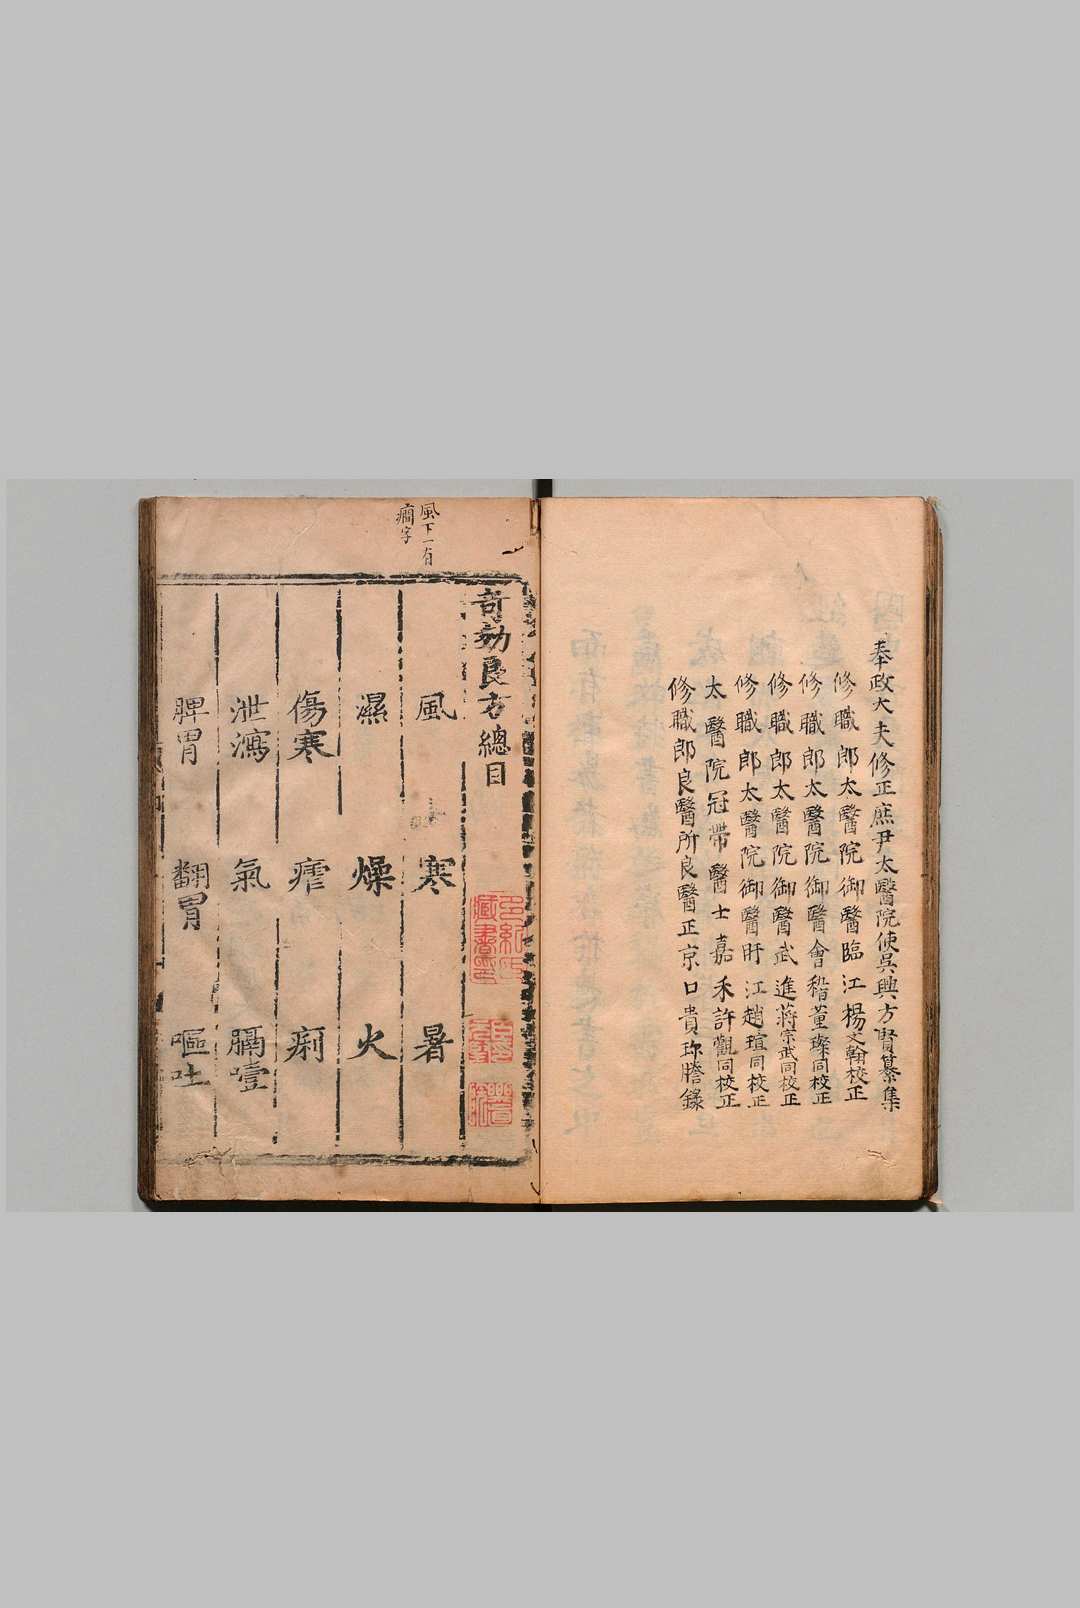 奉政大夫修正庶尹太醫院使吳興方賢纂集
修職郎太醫院御醫臨江楊文翰校正
修職郎太醫院御醫會稽董璨同校正
修職郎太醫院御醫武進蔣宗武同校正
修職郎太醫院御醫盱江趙瑄同校正
太醫院冠帶醫士嘉禾許觀同校正
修職郎良醫所良醫正京口貴珎謄錄
風下一有
癎字
奇効良方總目
風 寒 暑
濕 燥 火
傷寒 瘧 痢
泄瀉 氣 膈噎
脾胃 翻胃 嘔吐
藏書